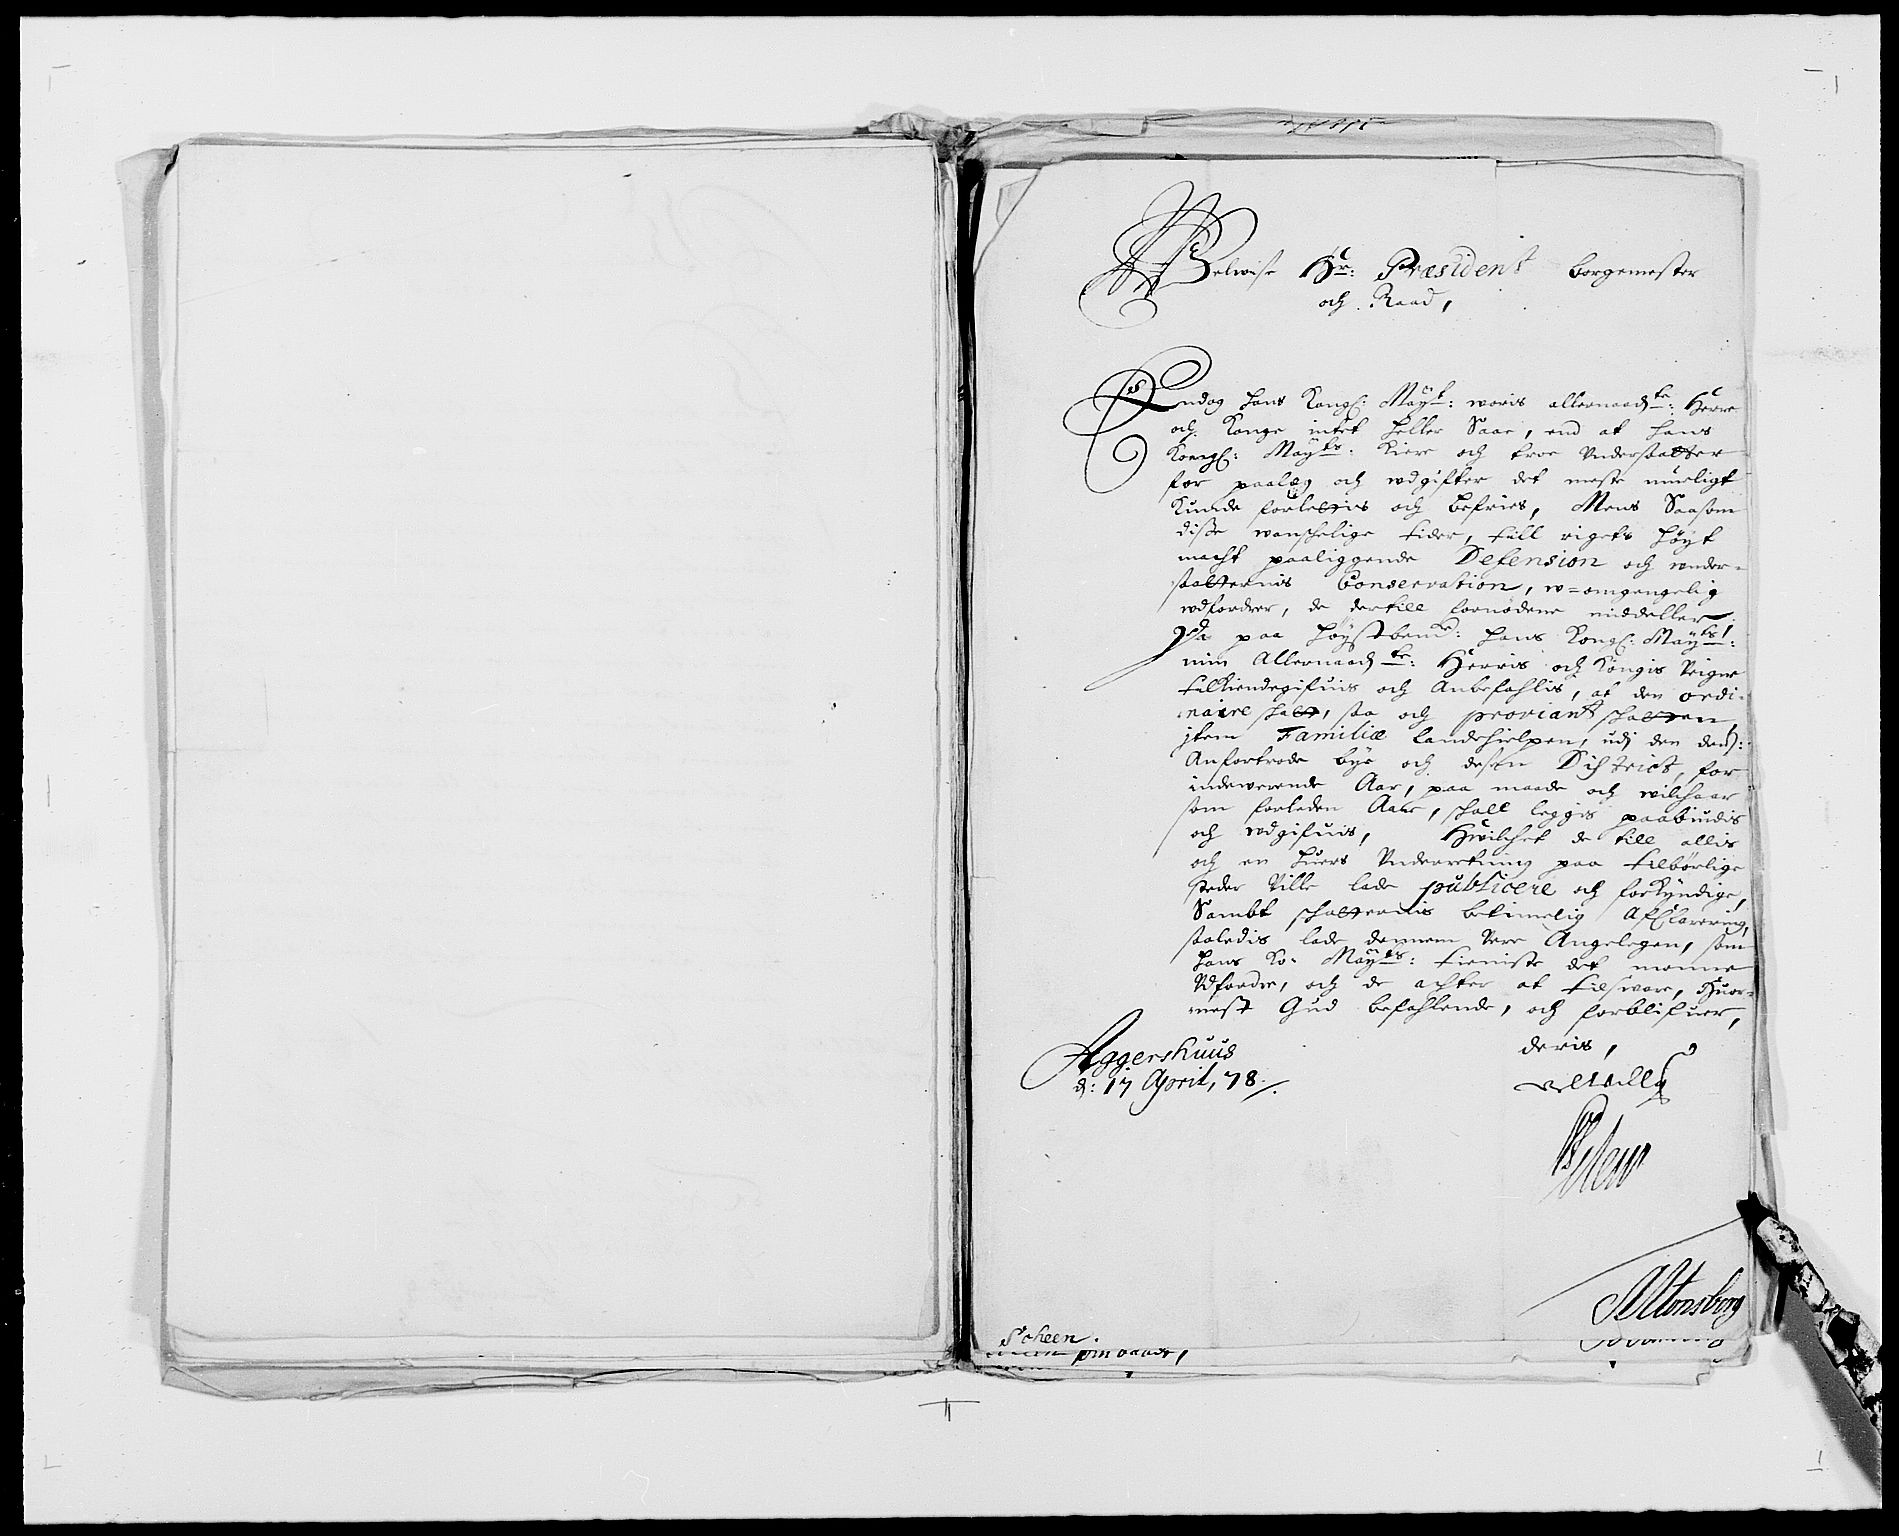 Velwise Hr: Præsident borgemester
och Raad,
Endog hans Kongl: Maÿt: woris allernaadgte: Herre
och Konge intet heller Saae, end at hans
Kongl: Maÿts: Kiere och troe Vndersaatter
for paalæg och udgifter det meste mueligt
Kunde forlettis och befries, Mens Saasom
disse vanschelige tider, till rigets høyt
macht paaliggende Defension och under-
saatternis Conservation, w=omgengelig
udfordrer, de dertill fornødene middeller,
Da paa høystbemte: hans Kongl: Maÿts:
min Allernaadgte: Herris och Kongis Veigne
tilkiendegifuis och Anbefahlis, at den ordi-
naire schatt, saa och proviant schatten,
jtem Familiæ landehielpen, udj den dem:
Anfortrode bye och dessen District, for
indewerende Aar, paa maade och wilchaar
som forleden Aar, schall leggis paabiudis
och udgifuis, Hwilchet de till allis
och en huers Vnderretning paa tilbørlige
steder Ville lade publicere och forkÿndige,
Sambt schatternis betimelig Afclarering,
saaledis lade dennem Vere Angelegen, som
hans Ko: Maÿts: tieniste det monne
Udfordre, och de achter at tilsware, Huor-
mest Gud befahlende, och forblifuer,
Aggershuus
d: 17 April, 78.
deris,
velvillig
Altonsborg
Scheen.